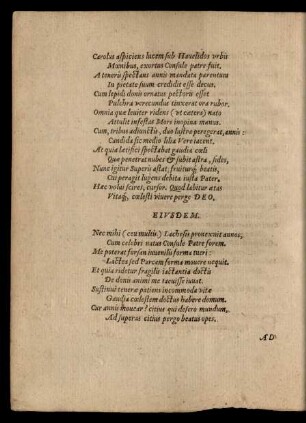 Carolus aspiciens lucem sub Havelidos urbis
Munibus, exortus Consule patre fuit,
A teneris spectans annis mandata parentum
In pietate suum credidit esse decus.
Cum lepidi donis ornatus pectoris esset
Pulchra verecundus tinxerat ora rubor.
Omnia quæ leviter ridens (ut cætera) nato
Attulit infestas Mors inopina manus.
Cum, tribus adiunctis, duo lustra peregerat, annis:
Candida sic medio lilia Vere iacent.
At quia lætifici spectabat gaudia cœli
Quæ penetrat nubes & subit astra, fides,
Nunc igitur Superis astat, fruiturq; beatis,
Cui peragit lugens debita iusta Pater.
Hæc volui scires, cursor. Quod labitur ætas
Vitaq;, cœlesti vivere pergo DEO.
EIUSDEM.
Nec mihi (ceu multis) Lachesis pronexuit annos,
Cum celebri natus Consule Patre forem.
Me poterat forsan iuvenilis forma tueri:
Lactea sed Parcam forma movere nequit.
Et quia ridetur fragilis iactantia doctis
De donis animi me tacuisse iuvat.
Sustinui teneræ patiens incommoda vitæ
Gaudia cœlestem doctus habere domum.
Cur annis movear? citius qui desero mundum,
Ad superas citius pergo beatus opes.
AD